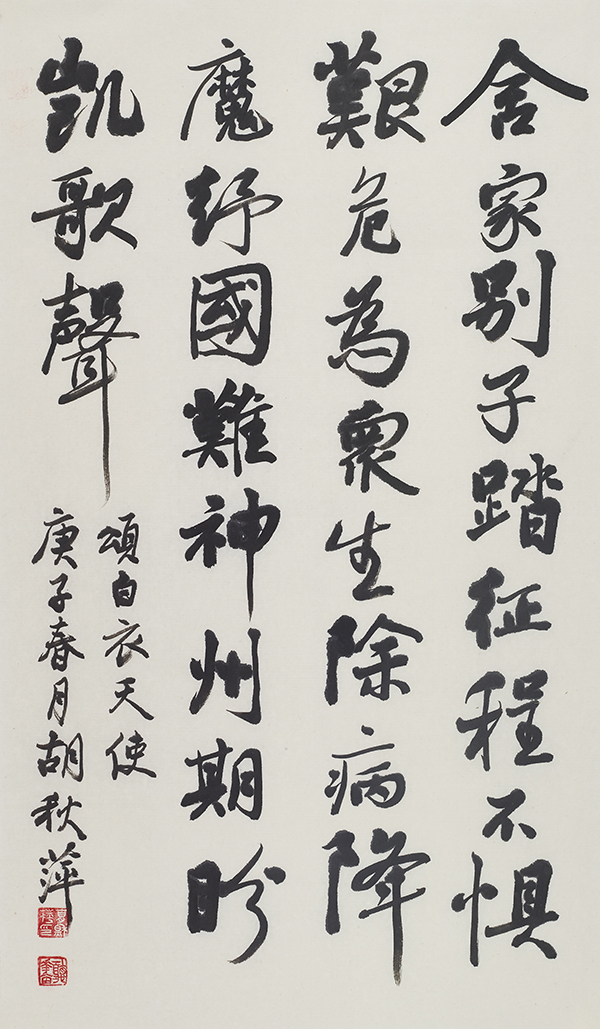 舍家別子踏征程不惧
艱危為眾生除病降
魔紓國難神州期盼
凱歌聲
頌白衣天使
庚子春月胡秋萍